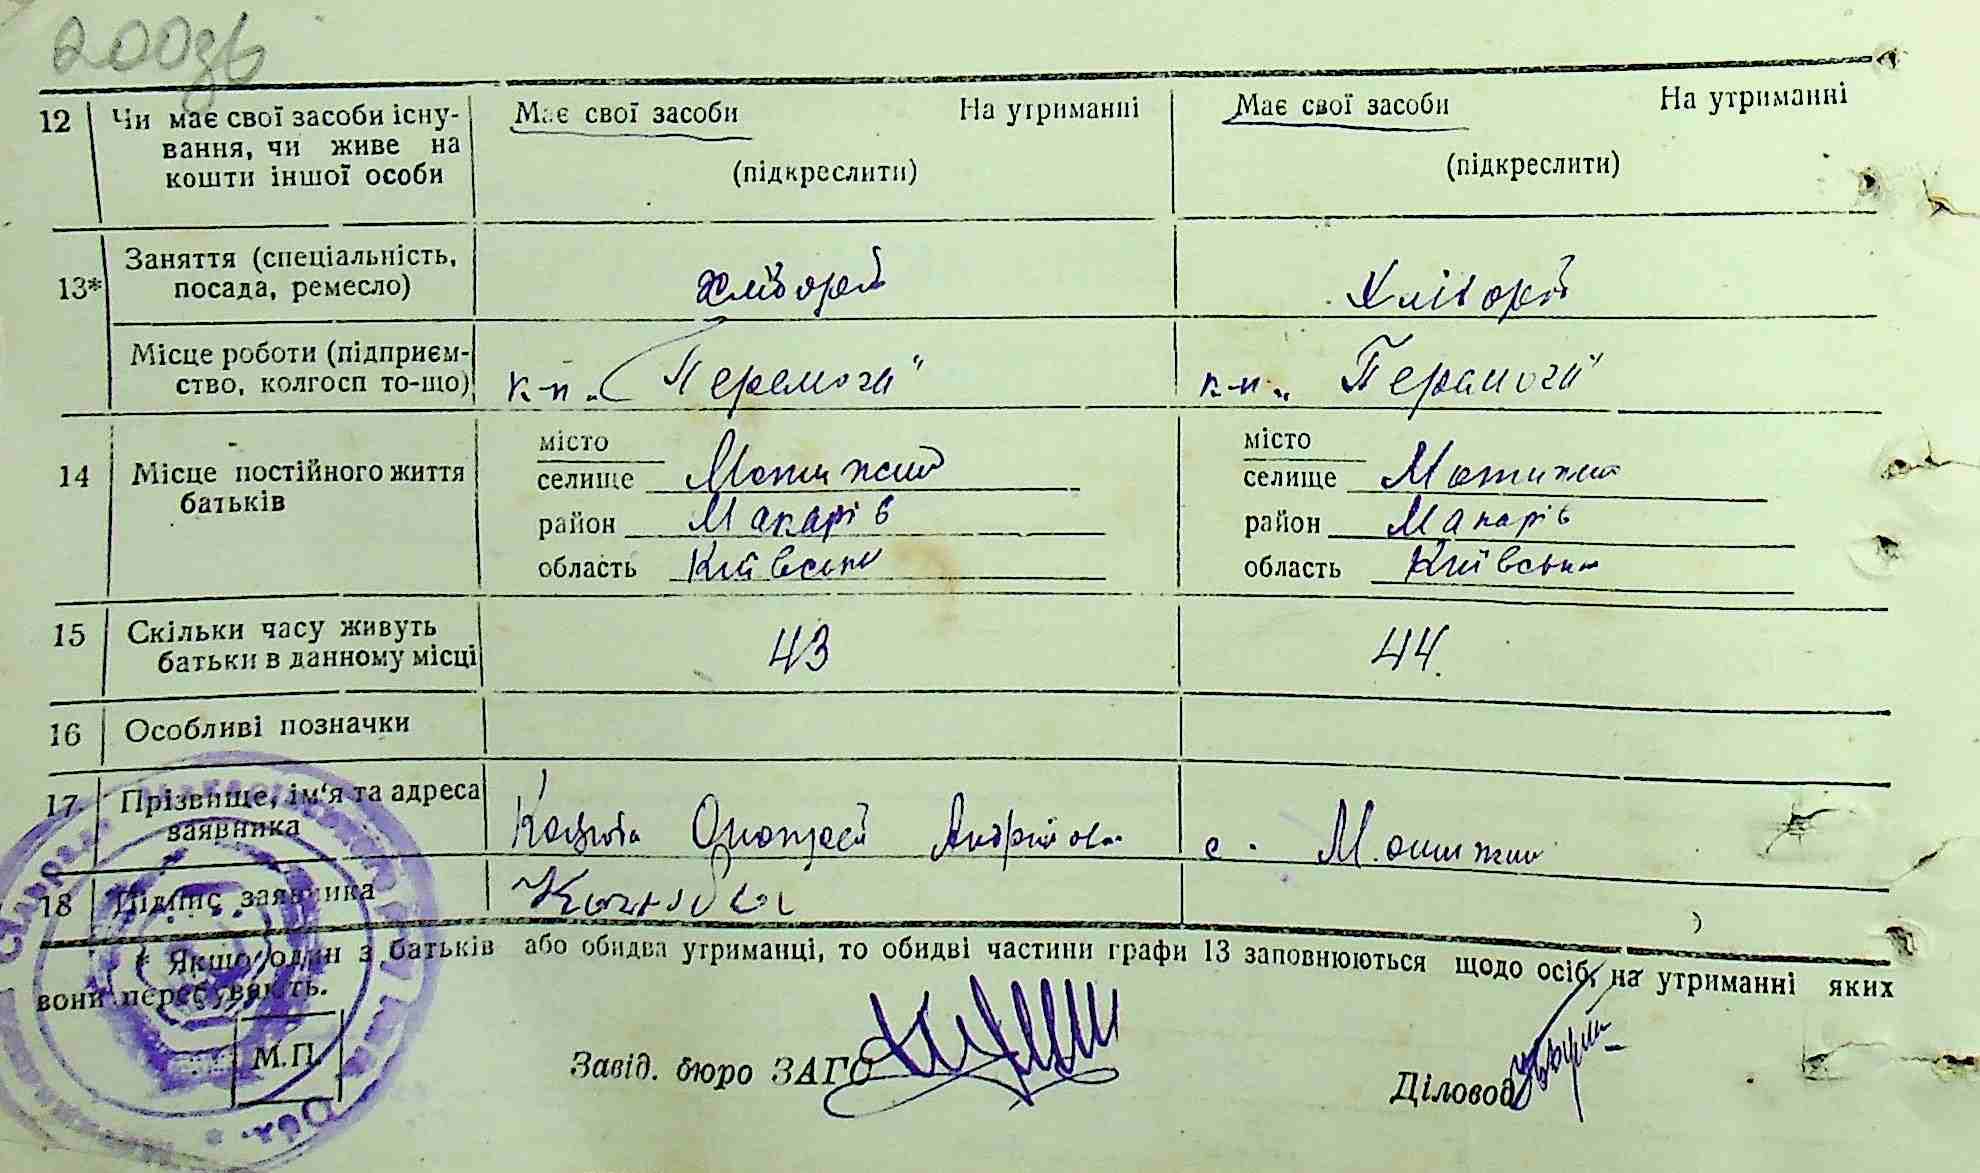 200зв
12 Чи має свої засоби існу- Має свої засоби На утриманні Має свої засоби На утриманні
вання, чи живе на (підкреслити) (підкреслити)
кошти іншої особи
Заняття (спеціальність,
13* посада, ремесло) хлібороб Хлібороб
Місце роботи (підприєм-
ство, колгосп то-що) к-п „Перемоги" к-п „Перемоги"
місто місто
14 Місце постійного життя селище Мотижин селище Мотижин
батьків район Макарів район Макарів
область Київська область Київська
15 Скільки часу живуть 43 44
батьки в данному місці
16 Особливі позначки
17 Прізвище, ім'я та адреса
заявника с. Мотижин
18 Підпис заявника
* Якщо один з батьків або обидва утриманці, то обидві частини графи 13 заповнюються щодо осіб, на утриманні яких
вони перебувають.
М.П.
Завід. бюро ЗАГС Діловод